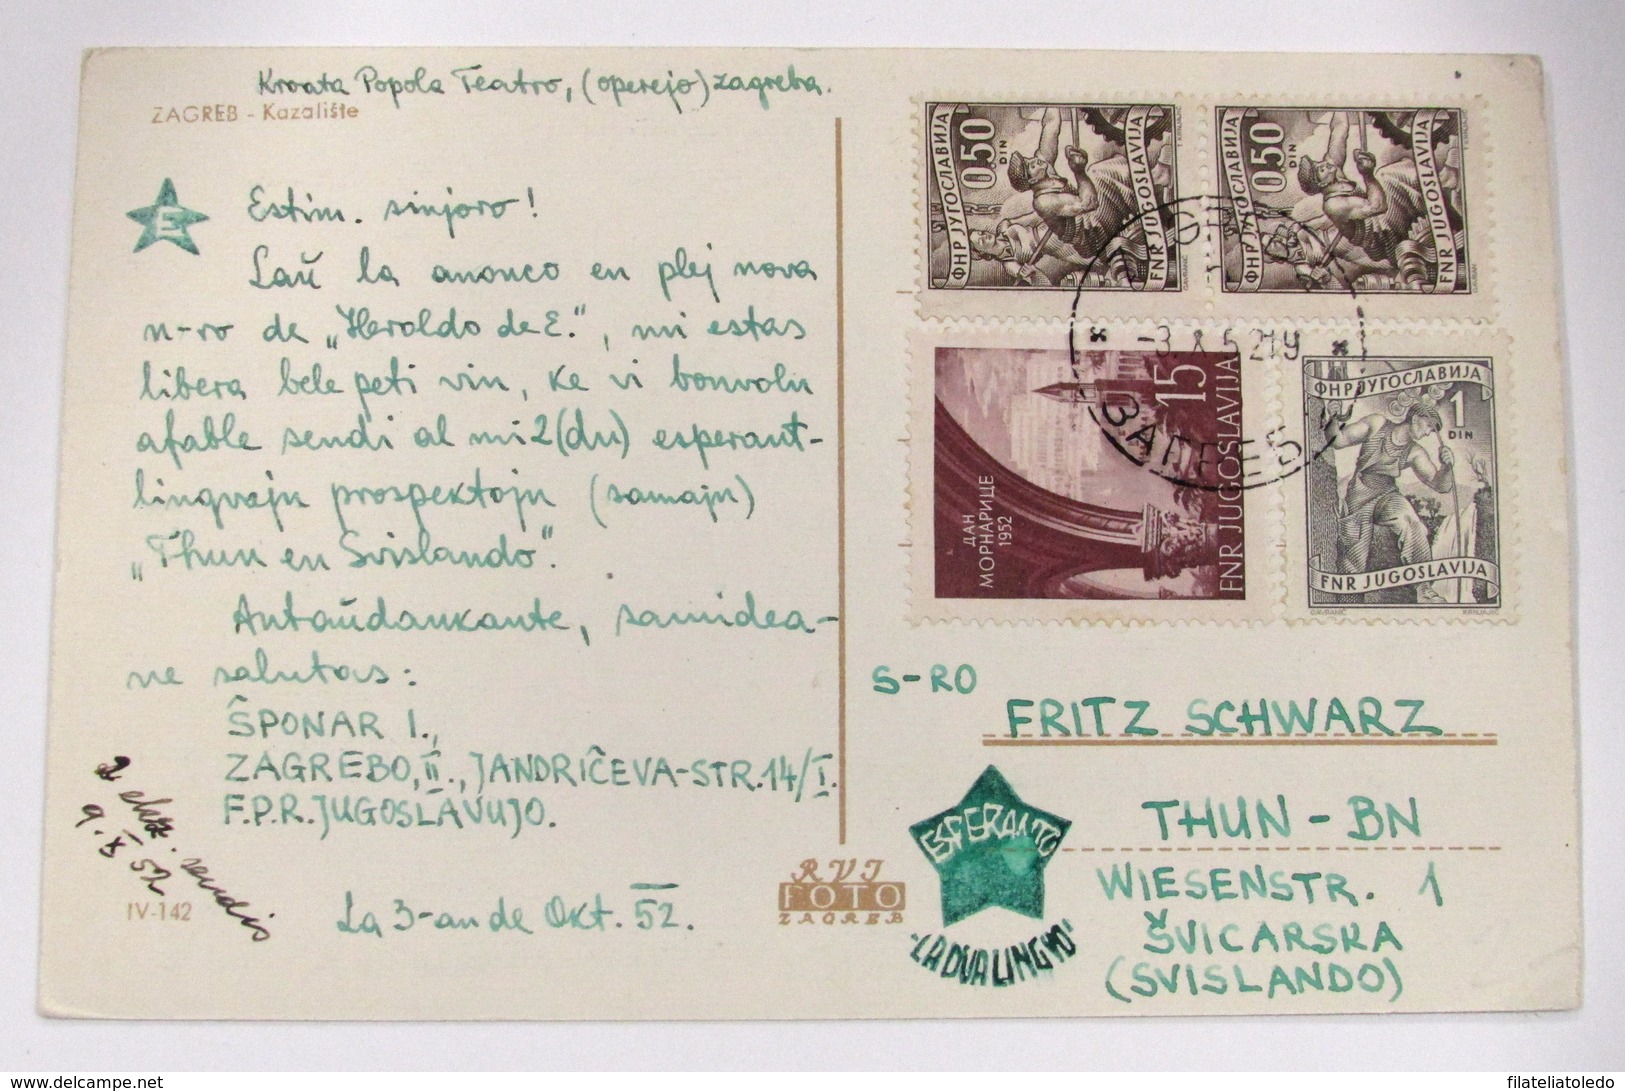 Kroata Popola Teatro, (operejo) Zagreba.
ZAGREB - Kazalište
E
Estim. sinjoro!
Laŭ la anonco en plej nova
n-ro de „Heroldo de E.", mi estas
libera bele peti vin, ke vi bonvolu
afable sendi al mi 2(du) esperant-
lingvajn prospektojn (samajn)
„Thun en Svislando".
Antaŭdankante, samidea-
ne salutas:
ŠPONAR I.,
ZAGREBO, II., JANDRIČEVA-STR. 14/I.
F.P.R. JUGOSLAVUJO.
La 3-an de Okt. 52.
sendis
9. X 52
IV-142
RVI
FOTO
ZAGREB
ФНР ЈУГОСЛАВИЈА
0.50
DIN
FNR JUGOSLAVIJA
ФНР ЈУГОСЛАВИЈА
0.50
DIN
FNR JUGOSLAVIJA
-3. X 52 19
ЗАГРЕБ
15
ДАН
МОРНАРИЦЕ
1952
FNR JUGOSLAVIJA
ФНР ЈУГОСЛАВИЈА
1
DIN
FNR JUGOSLAVIJA
S-RO
FRITZ SCHWARZ
THUN - BN
WIESENSTR. 1
ŠVICARSKA
(SVISLANDO)
ESPERANTO
-LA DUA LINGVO
filateliatoledo - delcampe.net